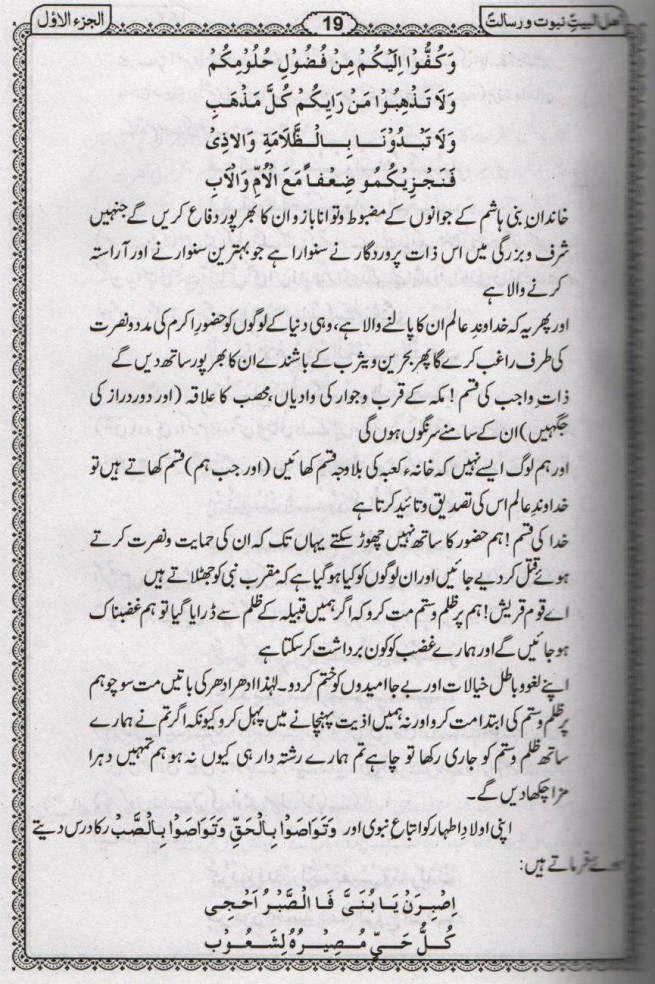 اهل البیتِ نبوت و رسالت
19
الجزء الاوّل
وَ كُفُّوْا اِلَیْكُمْ مِنْ فُضُوْلِ حُلُوْمِكُمْ
وَلَا تَذْهِبُوْا مِنْ رَایِكُمْ كُلَّ مَذْهَبٖ
وَلَا تَبْدُوْنَا بِالظُّلَامَةِ وَالَاذِیْ
فَنَجْزِیْكُمُو ضِعْفاً مَّعَ الْاُمِّ وَالْاَبِ
خاندانِ بنی ہاشم کے جوانوں کے مضبوط و توانا بازو ان کا بھر پور دفاع کریں گے جنہیں
شرف و بزرگی میں اس ذات پروردگار نے سنوارا ہے جو بہترین سنوارنے اور آراستہ
کرنے والا ہے
اور پھر یہ کہ خداوندِ عالم ان کا پالنے والا ہے، وہی دنیا کے لوگوں کو حضورِ اکرم کی مدد و نصرت
کی طرف راغب کرے گا پھر بحرین و یثرب کے باشندے ان کا بھر پور ساتھ دیں گے
ذاتِ واجب کی قسم! مکہ کے قرب و جوار کی وادیاں، محصب کا علاقہ (اور دور دراز کی
جگہیں) ان کے سامنے سرنگوں ہوں گی
اور ہم لوگ ایسے نہیں کہ خانہء کعبہ کی بلاوجہ قسم کھائیں (اور جب ہم) قسم کھاتے ہیں تو
خداوندِ عالم اس کی تصدیق و تائید کرتا ہے
خدا کی قسم! ہم حضور کا ساتھ نہیں چھوڑ سکتے یہاں تک کہ ان کی حمایت و نصرت کرتے
ہوئے قتل کر دیے جائیں اور ان لوگوں کو کیا ہو گیا ہے کہ مقرب نبی کو جھٹلاتے ہیں
اے قومِ قریش! ہم پر ظلم و ستم مت کرو کہ اگر ہمیں قبیلہ کے ظلم سے ڈرایا گیا تو ہم غضبناک
ہو جائیں گے اور ہمارے غضب کو کون برداشت کر سکتا ہے
اپنے لغو و باطل خیالات اور بے جا امیدوں کو ختم کر دو۔ لہٰذا ادھر ادھر کی باتیں مت سوچو ہم
پر ظلم و ستم کی ابتدا مت کرو اور نہ ہمیں اذیت پہنچانے میں پہل کرو کیونکہ اگر تم نے ہمارے
ساتھ ظلم و ستم کو جاری رکھا تو چاہے تم ہمارے رشتہ دار ہی کیوں نہ ہو ہم تمہیں دہرا
مزا چکھا دیں گے۔
اپنی اولادِ اطہار کو اتباعِ نبوی اور وَتَوَاصَوْا بِالْحَقِّ وَتَوَاصَوْا بِالصَّبْ رکا درس دیتے
ہوئے فرماتے ہیں:
اِصْبِرَنْ یَا بُنَیَّ فَا الصَّبْرُ اَحْجٰی
كُلُّ حَيٍّ مُصِیْرُهُ لِشَعُوْبٖ